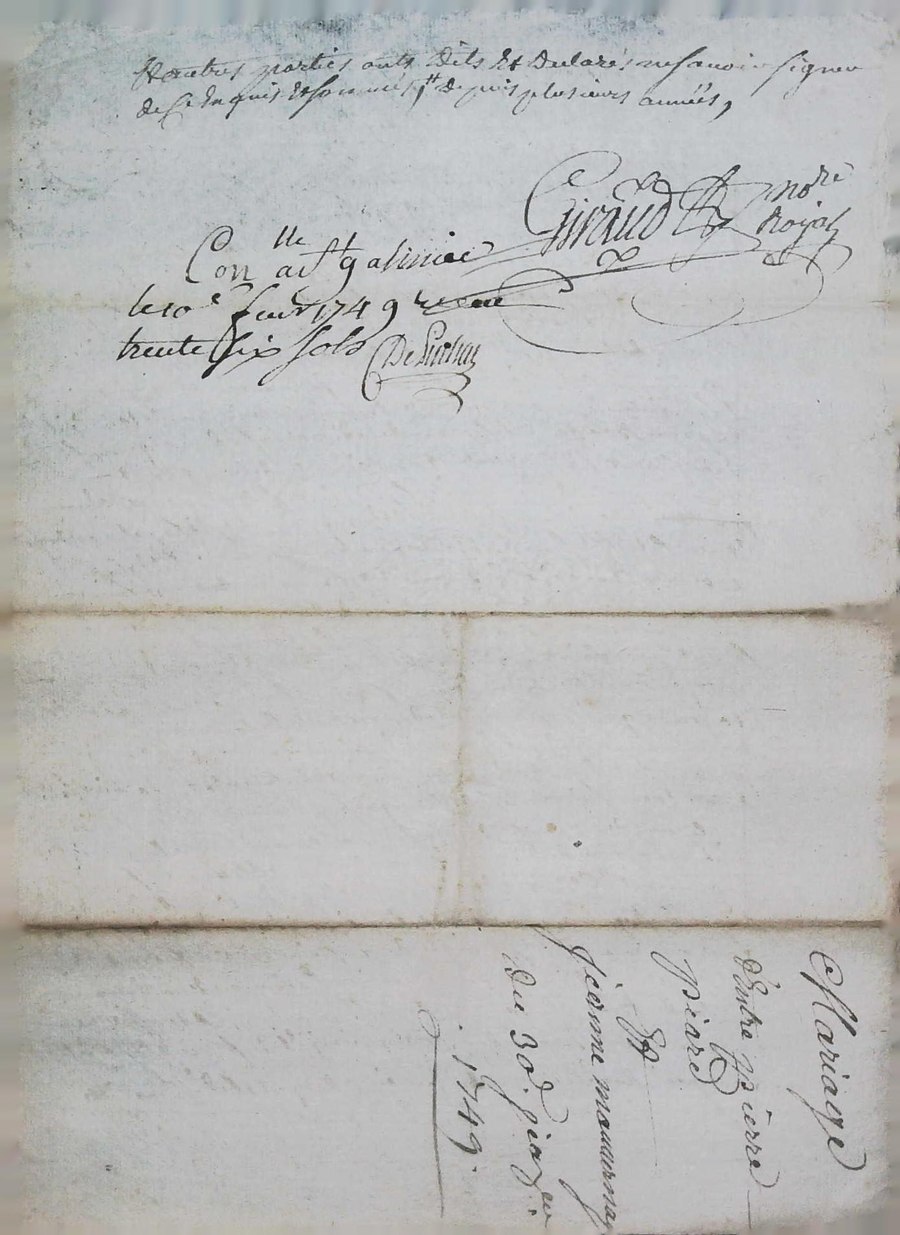 autres parties ont dits et declarés ne savoir signer
de ce enquis et sommés, depuis plusieurs années,
Giraud nore
Royal
Conlle a
le 10e fevr 1749 recu
trente six sols
Mariage
D'entre pierre
piard
Et
jeanne
du 30e janvier
1749.